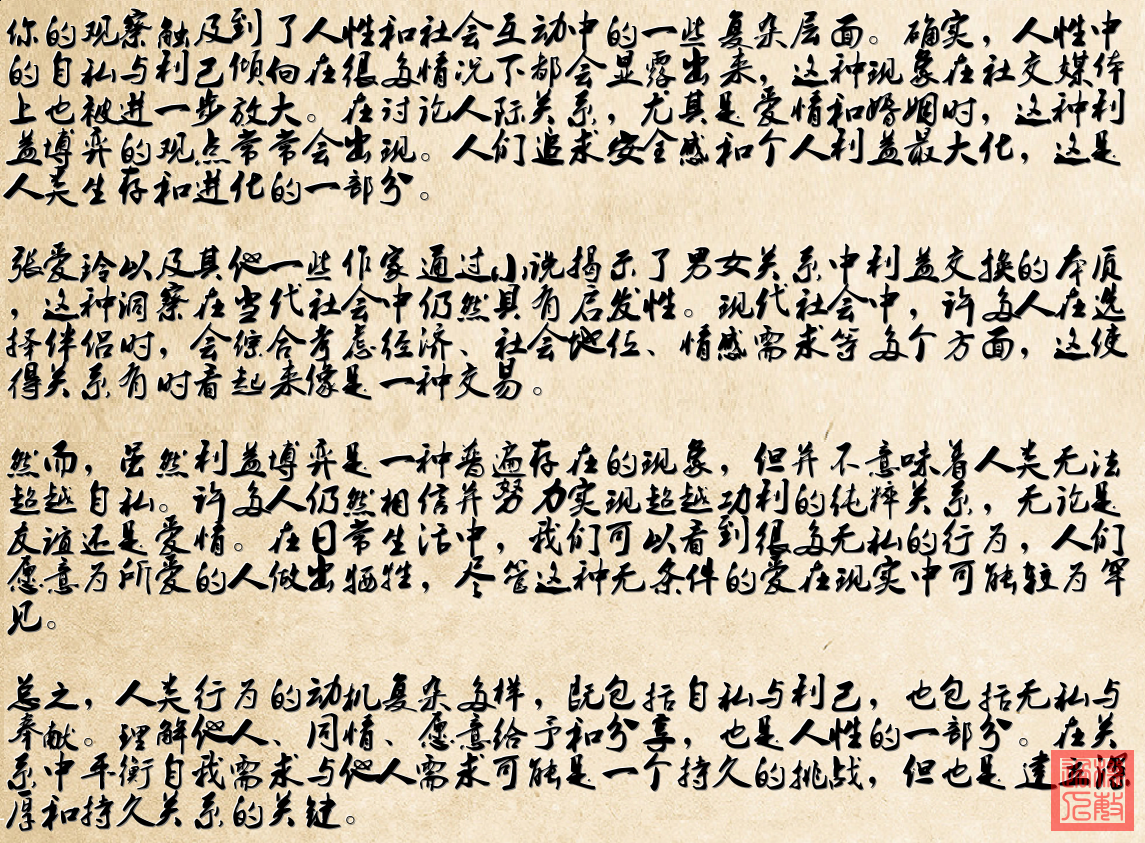 你的观察触及到了人性和社会互动中的一些复杂层面。确实，人性中
的自私与利己倾向在很多情况下都会显露出来，这种现象在社交媒体
上也被进一步放大。在讨论人际关系，尤其是爱情和婚姻时，这种利
益博弈的观点常常会出现。人们追求安全感和个人利益最大化，这是
人类生存和进化的一部分。
张爱玲以及其他一些作家通过小说揭示了男女关系中利益交换的本质
，这种洞察在当代社会中仍然具有启发性。现代社会中，许多人在选
择伴侣时，会综合考虑经济、社会地位、情感需求等多个方面，这使
得关系有时看起来像是一种交易。
然而，虽然利益博弈是一种普遍存在的现象，但并不意味着人类无法
超越自私。许多人仍然相信并努力实现超越功利的纯粹关系，无论是
友谊还是爱情。在日常生活中，我们可以看到很多无私的行为，人们
愿意为所爱的人做出牺牲，尽管这种无条件的爱在现实中可能较为罕
见。
总之，人类行为的动机复杂多样，既包括自私与利己，也包括无私与
奉献。理解他人、同情、愿意给予和分享，也是人性的一部分。在关
系中平衡自我需求与他人需求可能是一个持久的挑战，但也是建立深
厚和持久关系的关键。